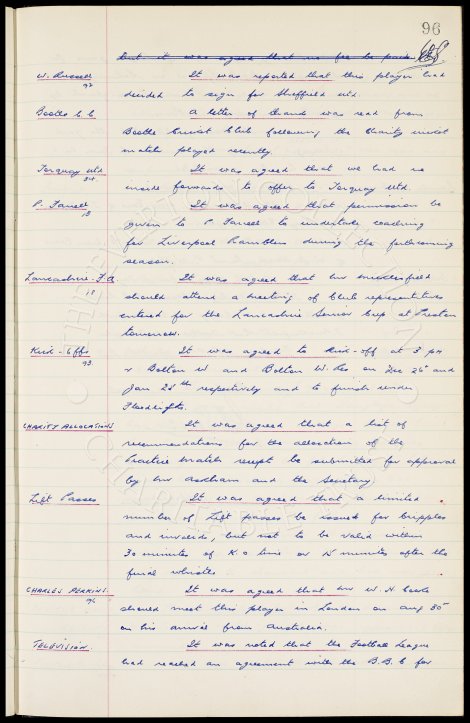 96
but it was agreed that no fee be paid
W. Russell It was reported that this player had
92
decided to sign for Sheffield Utd.
Bootle C.C. A letter of thanks was read from
Bootle Cricket Club following the Charity cricket
match played recently.
Torquay Utd It was agreed that we had no
34
inside forwards to offer to Torquay Utd.
P. Farrell It was agreed that permission be
given to P. Farrell to undertake coaching
for Liverpool Ramblers during the forthcoming
season.
Lancashire F.A. It was agreed that Mr
18
should attend a meeting of Club representatives
entered for the Lancashire Senior Cup at Preston
tomorrow.
Kick-Offs It was agreed to Kick-off at 3 pm
93
v Bolton W and Bolton W. Res on Dec 26th and
Jan 28th respectively and to finish under
Floodlights.
CHARITY ALLOCATIONS It was agreed that a list of
recommendations for the allocation of the
Practice Match receipt be submitted for approval
by Mr and the Secretary
Lift Passes It was agreed that a limited
number of Lift passes be issued for cripples
and invalids, but not to be valid within
30 minutes of K.O time or 15 minutes after the
final whistle.
CHARLES PERKINS. It was agreed that Mr W. H.
should meet this player in London on Aug
on his arrival from Australia.
TELEVISION. It was noted that the Football League
had reached an agreement with the B.B.C for